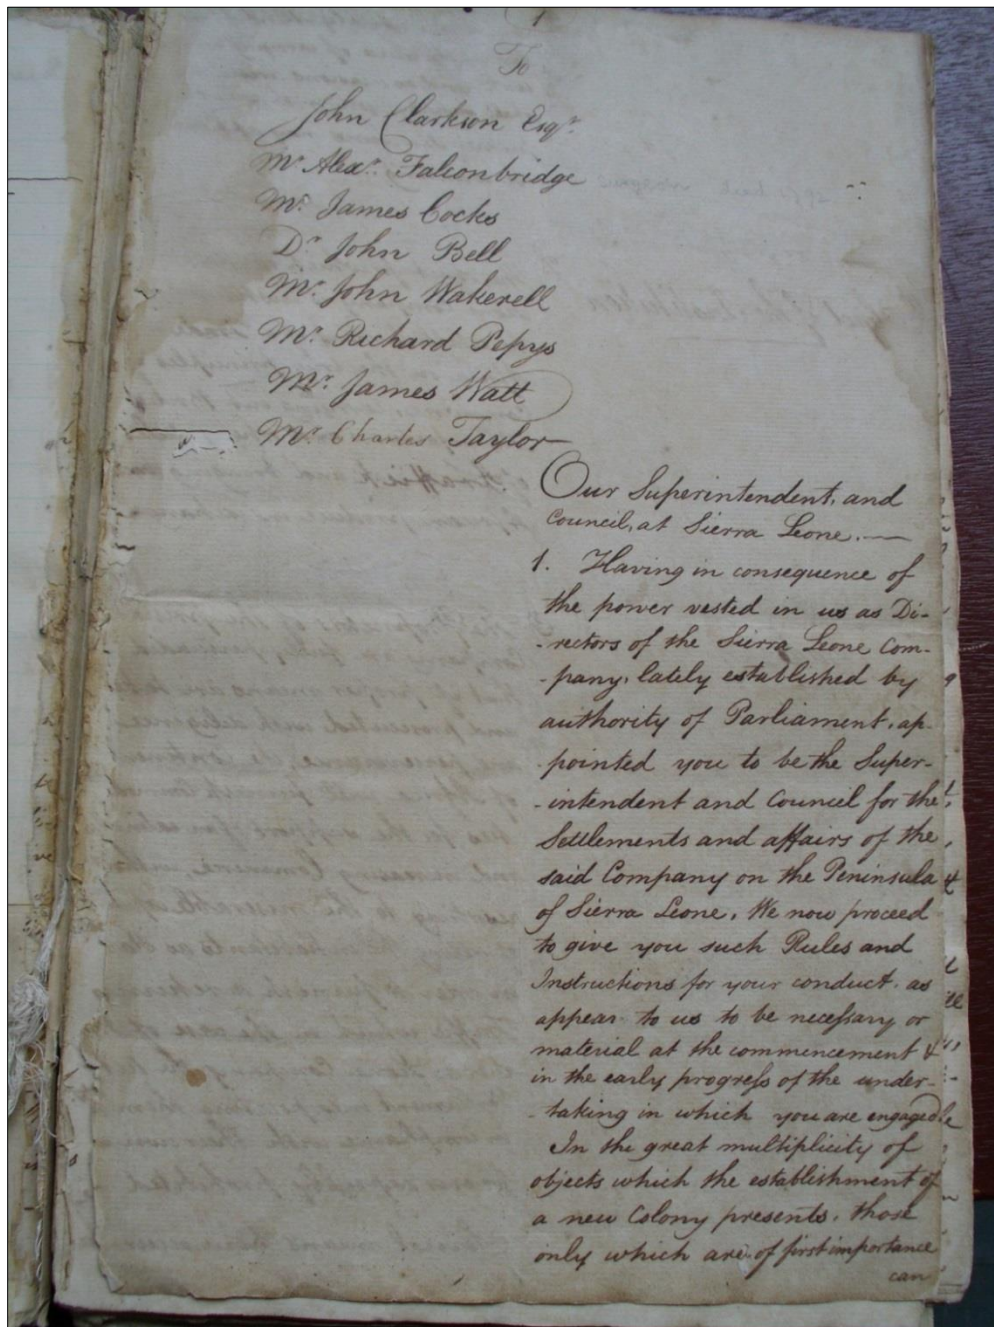 To
John Clarkson Esqr.
Mr. Alexr. Falconbridge
Mr. James Cocks
Dr. John Bell
Mr. John Wakerell
Mr. Richard Pepys
Mr. James Watt
Mr. Charles Taylor
Our Superintendent, and
Council, at Sierra Leone.
1. Having in consequence of
the power vested in us as Di-
-rectors of the Sierra Leone Com-
-pany, lately established by
authority of Parliament, ap-
-pointed you to be the Super-
-intendent and Council for the
Settlements and affairs of the
said Company on the Peninsula
of Sierra Leone, We now proceed
to give you such Rules and
Instructions for your conduct, as
appear to us to be necessary or
material at the commencement &
in the early progress of the under-
-taking in which you are engaged
In the great multiplicity of
objects which the establishment of
a new Colony presents, those
only which are of first importance
can